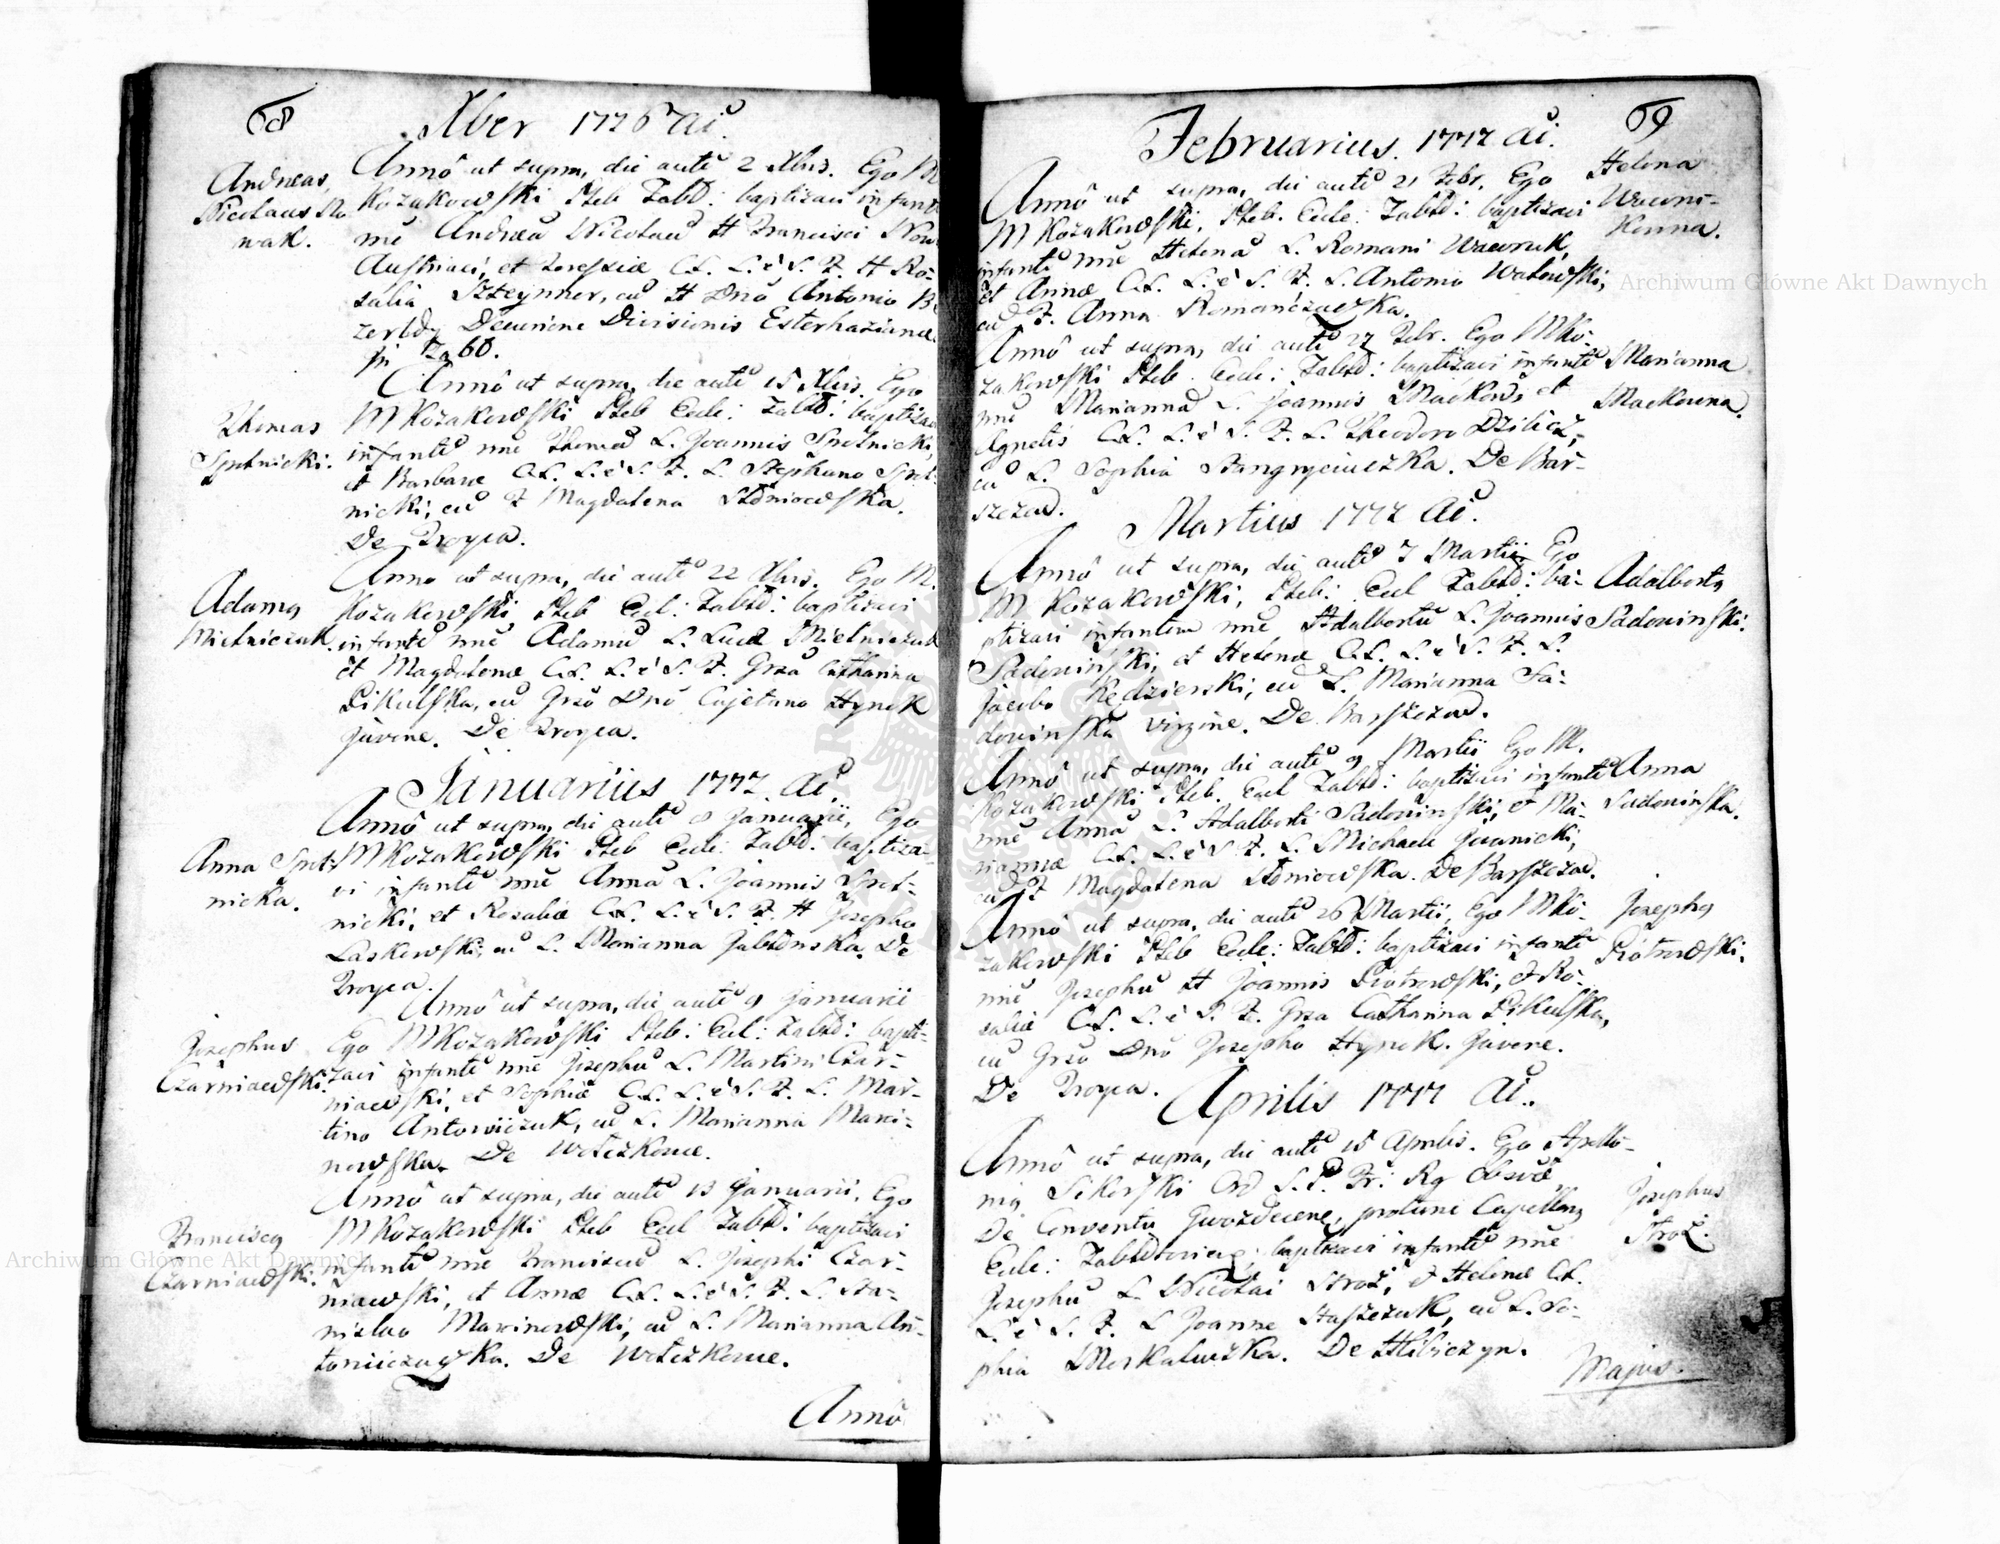 68
Xber 1776 Ai.
Andreas,
Nicolaus No
wak.
Annô ut supra, die autē 2 Xbris. Ego M
Kozakowski Pleb Zabł: baptizavi infant
nne Andreā Nicolaū H Francisci Now
Austriaci, et Teressiæ C.L. L. è S. P. H Ro-
salia Szteynner, cū H Dnō Antonio
Decurione Divisionis Esterhazianæ
in Zabł.
Thomas
Spotnicki.
Annô ut supra, die autē 15 Xbris. Ego
M Kozakowski Pleb Eccle: Zabł: baptiza
infantē nne Thomā L. Joannis Spotnicki,
et Barbaræ C.L. L. è S. P. L. Stephano Spot-
nicki, cū P Magdalena Słoniowska.
De Troyca.
Adamꝰ
Mielniczuk.
Anno ut supra, die autē 22 Xbris. Ego M.
Kozakowski, Pleb Eccl: Zabł: baptizavi
infantē nne Adamū L. Lucæ Mielniczuk
et Magdalenæ C.L. L. è S. P. Grsa Catharina
Pikulska, cū Grsō Dnō Cajetano Hynek
Juvene. De Troyca.
Januariius 1777. Ai.
Anna Spot-
nicka.
Annô ut supra, die autē 8 Januarii, Ego
M Kozakowski Pleb Eccle: Zabł: baptiza-
vi infantē nne Annā L. Joannis Spot-
nicki, et Rosaliæ C.L. L. è S. P. H Josepho
Laskowski, cū L. Marianna Jabłonska. De
Troyca.
Josephus
Czarniawski.
Annô ut supra, die autē 9 Januarii
Ego M Kozakowski Pleb: Eccl: Zabł: bapti-
zavi infantē nne Josephū L. Martini Czar-
niawski, et Sophiæ C.L. L. è S. P. L. Mar-
tino Antoniiczuk, cū L. Marianna Marci-
nowska. De Wołczkowce.
Franciscꝰ
Czarniawski.
Annô ut supra, die autē 13 Januarii, Ego
M Kozakowski Pleb Eccl Zabł: baptizavi
infantē nne Franciscū L. Josephi Czar-
niawski, et Annæ C.L. L. è S. P. L. Sta-
nislao Marcinowski, cū L. Marianna An-
toniiczaczka. De Wołczkowce.
Annô
69
Februarius. 1777 Ai.
Helena
Wawni-
kowna.
Annô ut supra, die autē 21 Febr. Ego
M Kozakowski, Pleb. Eccle: Zabł: baptizavi
infantē nne Helenā L. Romani Wawnuk,
et Annæ C.L. L. è S. P. L. Antonio Walewski,
cū P. Anna Romańczaczka.
Marianna
Mackowna.
Annô ut supra, die autē 27 Febr. Ego M Ko-
zakowski Pleb Eccle: Zabł: baptizavi infantē
nne Mariannā L. Joannis Maćkow, et
Agnetis C.L. L. è S. P. L. Theodoro
cū L. Sophia De Bar-
szczow.
Martius 1777 Ai.
Adalbertꝰ
Sadowinski.
Annô ut supra, die autē 7 Martii Ego
M Kozakowski, Pleb: Eccl Zabł: ba-
ptizavi infantem nne Adalbertū L. Joannis
Sadowinski, et Helenæ C.L. L. è S. P. L.
Jacobo Kędzierski, cū L. Marianna Sa-
dowinska virgine. De Barszczow.
Anna
Sadowinska.
Annô ut supra, die autē 9 Martii Ego M.
Kozakowski Pleb. Eccl Zabł: baptizavi infantē
nne Annā L. Adalberti Sadowinski, et Ma-
riannæ C.L. L. è S. P. L. Michaele Jwanicki,
cū P Magdalena Słoniowska. De Barszczow.
Josephꝰ
Piotrowski.
Annô ut supra, die autē 26 Martii, Ego M Ko-
zakowski Pleb Eccle: Zabł: baptizavi infantē
nne Josephū H Joannis Piotrowski, et Ro-
saliæ C.L. L. è S. P. Grsa Catharina Pikulska,
cū Grsō Dnō Josepho Hynek. Juvene.
De Troyca.
Aprilis 1777 Ai.
Josephus
Stroż.
Annô ut supra, die autē 15 Aprilis. Ego Apollo-
niꝰ Sikorski Ord S. P. Fr: Rg Observ.
De Conventu Gwozdecene, protunc Capellanꝰ
Eccle: Zabłtovien, baptizavi infantē nne
Josephū L Nicolai Stroż, et Helenæ C.L.
L. è S. P. L Joanne Staszczuk, cū L. So-
phia Moskaluszka. De Hlibiczyn.
Majus.